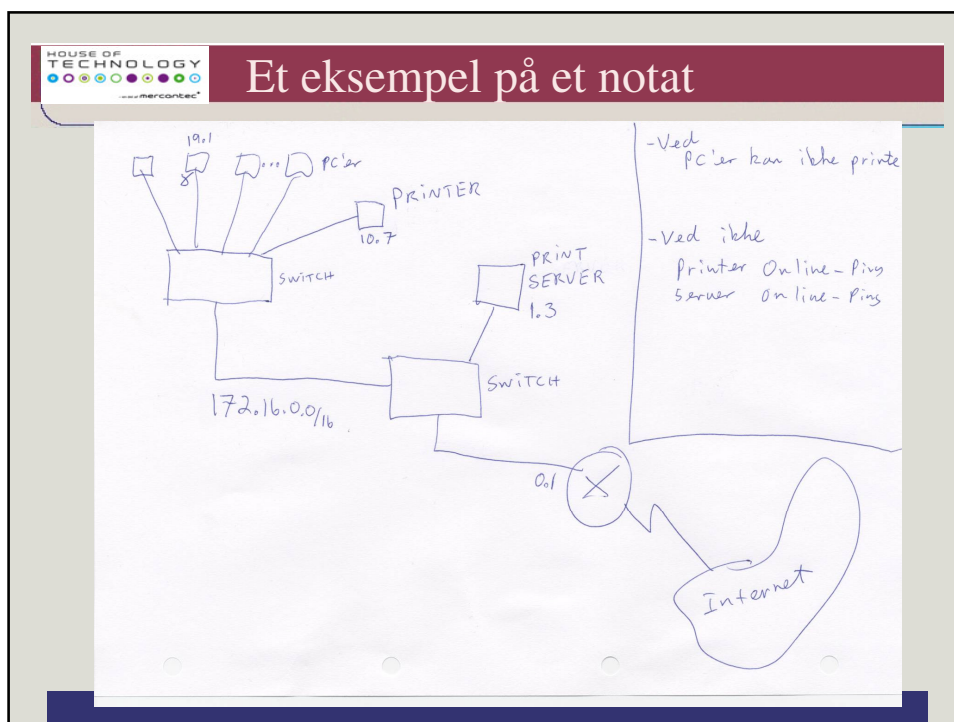 HOUSE OF
TECHNOLOGY
mercantec+
Et eksempel på et notat
19.1
PC'er
PRINTER
10.7
SWITCH
PRINT
SERVER
1.3
SWITCH
172.16.0.0/16
0.1
Internet
-Ved
PC'er kan ikke printe
-Ved ikke
Printer Online-Ping
Server online-Ping